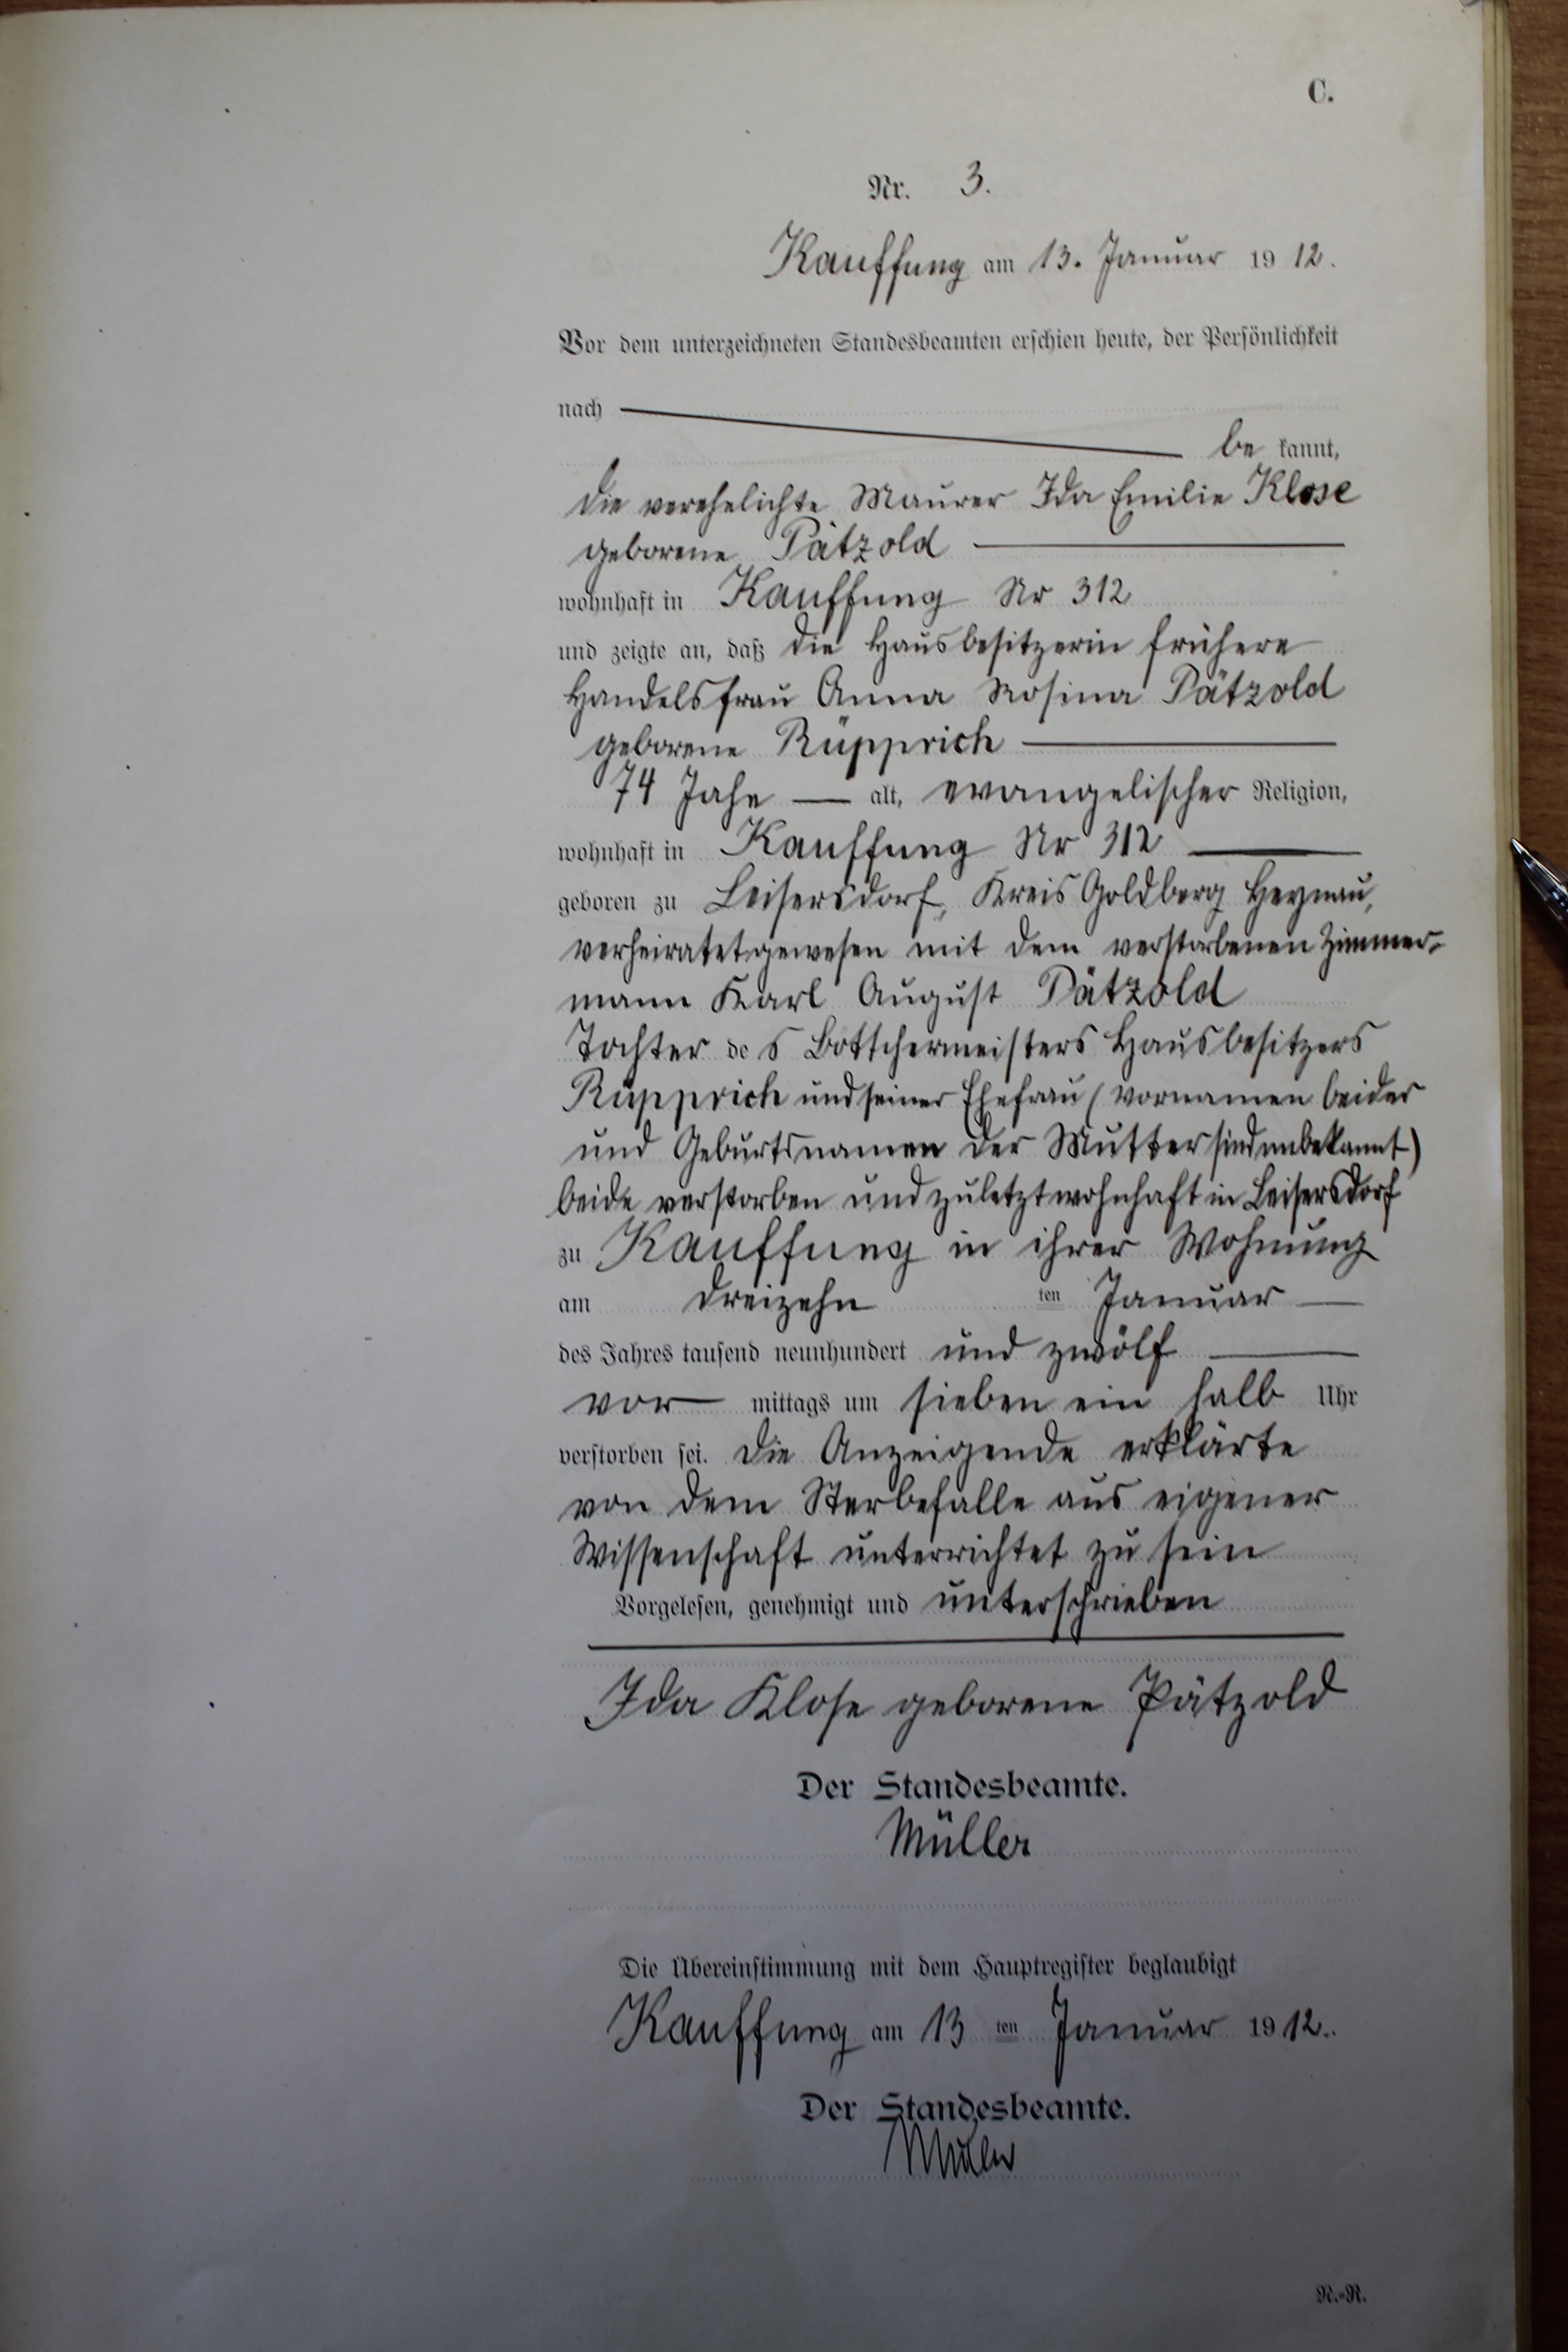 C.
Nr. 3.
Kauffung am 13. Januar 1912.
Vor dem unterzeichneten Standesbeamten erschien heute, der Persönlichkeit
nach
be kannt,
die verehelichte Maurer Ida Emilie Klose
geborene Pätzold
wohnhaft in Kauffung Nr 312
und zeigte an, daß die Hausbesitzerin frühere
Handelsfrau Anna Rosina Pätzold
geborene Rüpprich
74 Jahe alt, evangelischer Religion,
wohnhaft in Kauffung Nr 312
geboren zu Leisersdorf, Kreis Goldberg Heynau,
verheiratet gewesen mit dem verstorbenen Zimmer-
mann Karl August Pätzold
Tochter des Bottchermeisters Hausbesitzers
Rüpprich und seiner Ehefrau (Vornamen beider
und Geburtsnamen der Mutter sind unbekannt)
beide verstorben und zuletzt wohnhaft in Leisersdorf
zu Kauffung in ihrer Wohnung
am dreizehn ten Januar
des Jahres tausend neunhundert und zwölf
vor mittags um sieben ein halb Uhr
verstorben sei. Die Anzeigende erklärte
von dem Sterbefalle aus eigener
Wissenschaft unterrichtet zu sein
Vorgelesen, genehmigt und unterschrieben
Ida Klose geborene Pätzold
Der Standesbeamte.
Müller
Die Übereinstimmung mit dem Hauptregister beglaubigt
Kauffung am 13 ten Januar 1912.
Der Standesbeamte.
Müller
N.-R.